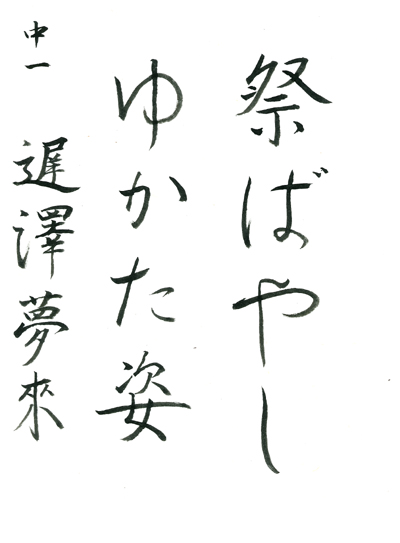 祭ばやし
ゆかた姿
中一 遅澤夢來